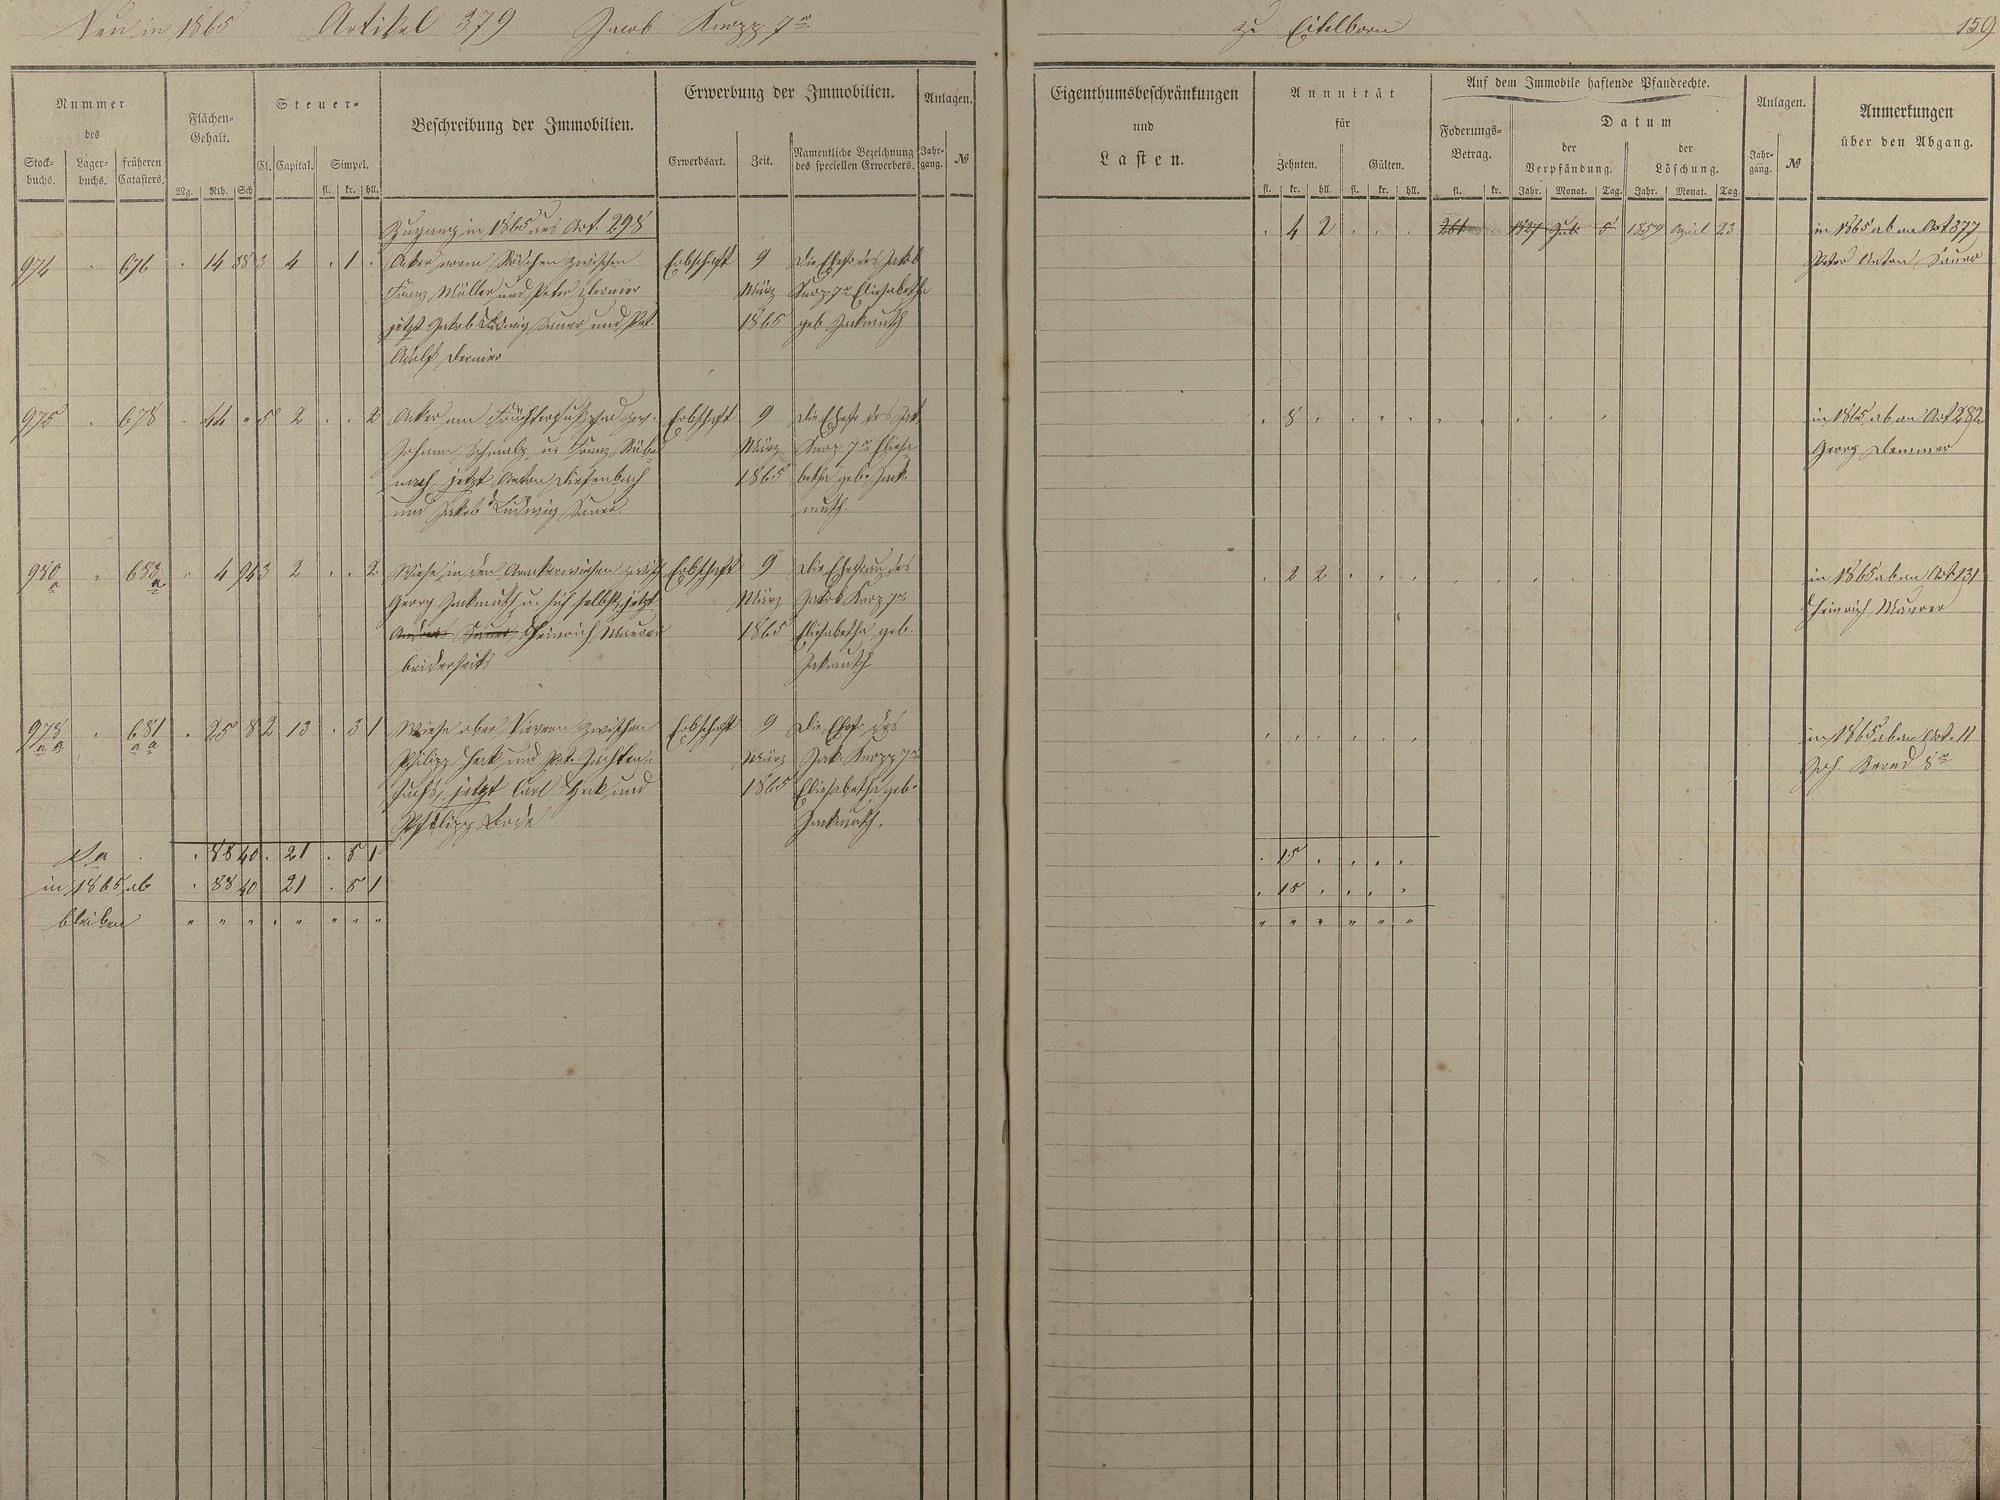 Neu in 1865 Artikel 379 Jacob Knopp 7r
zu Eitelborn
159
Nummer
des
Stock-
buchs.
Lager-
buchs.
früheren
Catasters.
Flächen-
Gehalt.
Mg. Rth. Sch
Steuer-
Cl. Capital. Simpel.
fl. kr. hll.
Beschreibung der Immobilien.
Erwerbung der Immobilien.
Erwerbsart. Zeit.
Namentliche Bezeichnung
des speciellen Erwerbers.
Anlagen.
Jahr-
gang.
№
Eigenthumsbeschränkungen
und
Lasten.
Annuität
für
Zehnten. Gülten.
fl. kr. hll. fl. kr. hll.
Auf dem Immobile haftende Pfandrechte.
Foderungs-
Betrag.
fl. kr.
Datum
der
Verpfändung.
Jahr. Monat. Tag.
der
Löschung.
Jahr. Monat. Tag.
Anlagen.
Jahr-
gang.
№
Anmerkungen
über den Abgang.
Zugang in 1865 aus Art. 298
974 676 14 88 3 4 1 Acker vorm zwischen Erbschaft 9 Die Ehefr. des Jakob
Franz Müller und Peter März Knop 7r Elisabetha
jetzt Jakob Ludwig Sauer und Pet. 1865 geb.
Adolf
4 2 5 1857 April 23 in 1865 ab an Art 377
Peter Anton Sauer
975 678 44 5 2 2 Acker am Erbschaft 9 Die Ehefr. des Jak.
Johann Schmalz u. Franz März Knop 7r Elisa
jetzt Anton Diefenbach 1865 betha geb.
und Jakob Ludwig Sauer.
8 in 1865 ab an Art 282
Georg Demmer
980a 683a 4 94 3 2 2 Wiese in den zwisch Erbschaft 9 Die Ehefrau des
Georg u. sich selbst, jetzt März Jakob Knop 7r
Sauer Heinrich Maurer 1865 Elisabetha geb.
beiderseits
2 2 in 1865 ab an Art 131
Heinrich Maurer
978aa 681aa 25 8 2 13 3 1 Wiese ober zwischen Erbschaft 9 Die Ehefr. des
Philipp Heck und Pet. März Jak. Knopp 7r
jetzt Carl Heck und 1865 Elisabetha geb.
Philipp Bode
in 1865 ab an Art. 11
Joh. 8r
Sa 88 40 21 5 1 15
in 1865 ab 88 40 21 5 1 15
bleiben " " " " " " " " " " " " " "